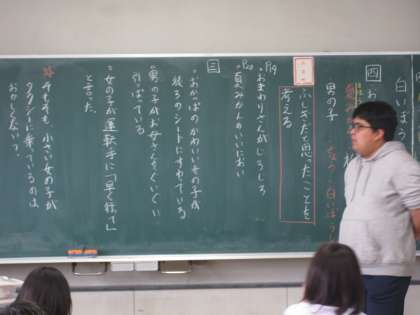 白いぼう
四
お
男の子
ふしぎだと思ったことを
考える
P19
・おまわりさんがじろじろ
P20
・夏みかんのにおい
三
・おかっぱのかわいい女の子が
後ろのシートにすわっている
・男の子がお母さんをぐいぐい
引っぱっている
・女の子が運転手に「早く行って」
と言った。
☆そもそも、小さい女の子が
タクシーに乗っているのは
おかしくない?